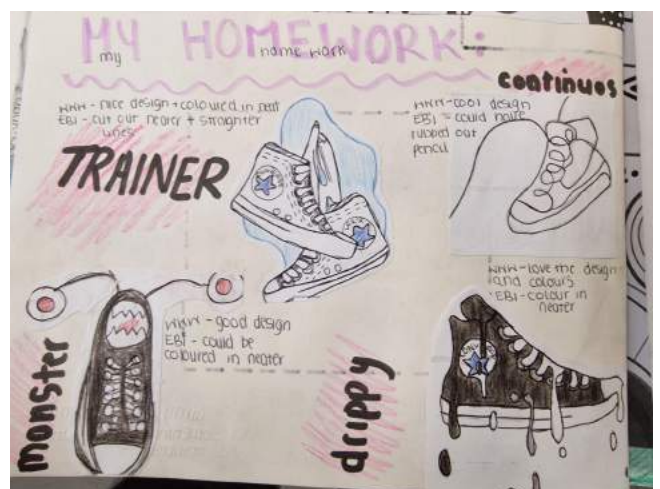 MY HOMEWORK:
my name work
continuos
WWW - nice design + coloured in neat
EBI - cut our nearer + straighter
lines
WWW - cool design
EBI - could have
rubbed out
pencil
TRAINER
WWW - love the design
and colours
EBI - colour in
neater
WWW - good design
EBI - could be
coloured in neater
monster
drippy